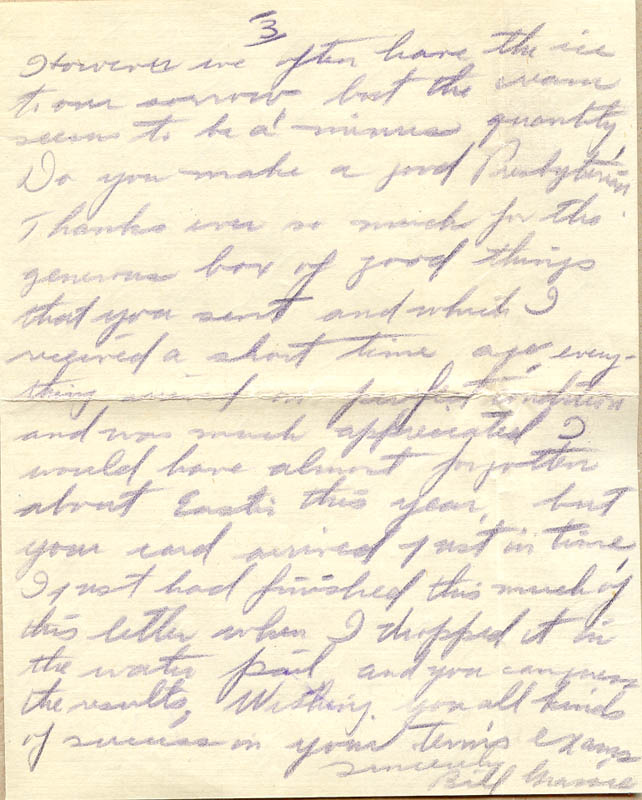 3
However we often have the ice
to our sorrow, but the cream
seems to be a minus quantity
Do you make a good Presbyterian.
Thanks ever so much for the
generous box of good things
that you sent and which I
received a short time ago, every-
thing arrived in perfect condition
and was much appreciated I
would have almost forgotten
about Easter this year, but
your card arrived just in time,
I just had finished this much of
this letter when I dropped it in
the water pail, and you can guess
the results, Wishing you all kinds
of success in your term's exams
Sincerely
Bill